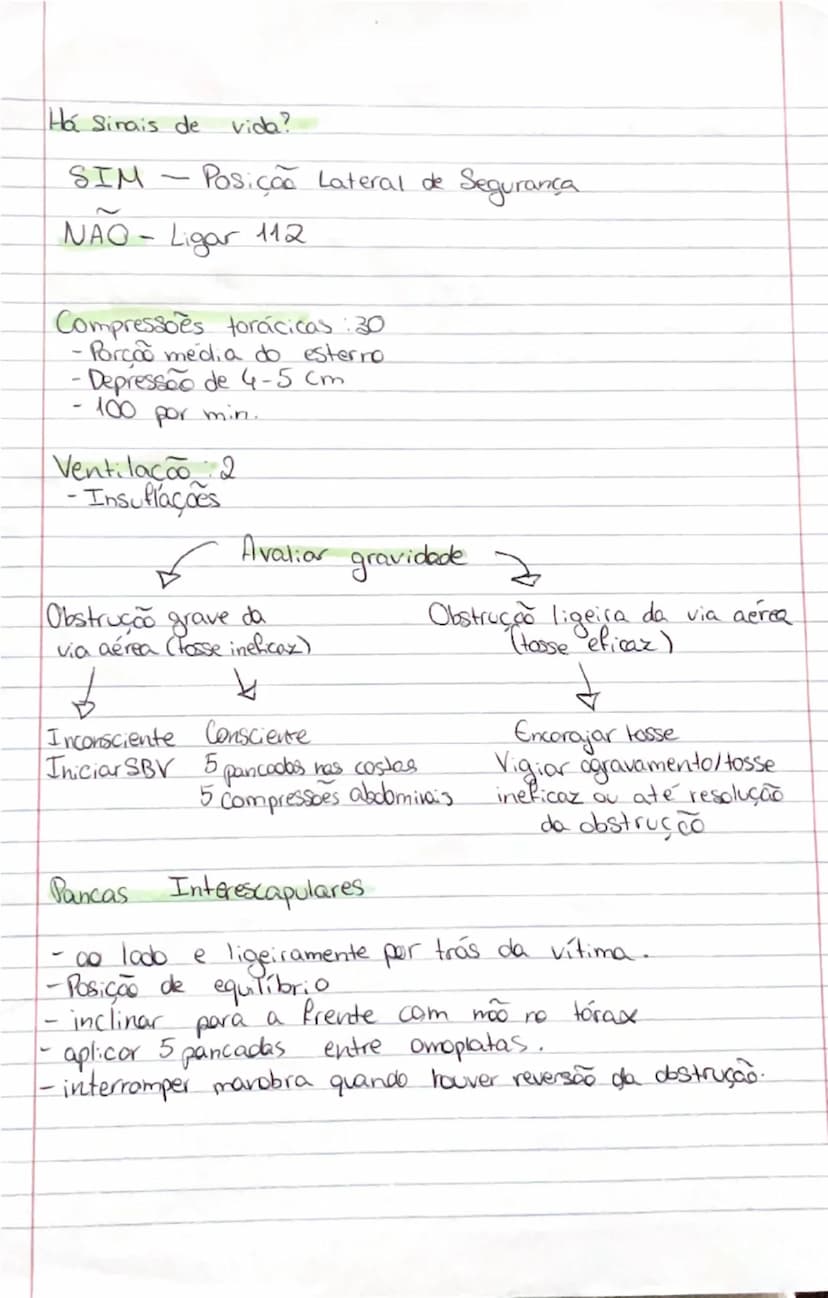 Há sinais de vida?
SIM — Posição Lateral de Segurança
NÃO - Ligar 112
Compressões torácicas : 30
- Porção média do esterno
- Depressão de 4-5 cm
- 100 por min.
Ventilação : 2
- Insuflações
Avaliar gravidade
Obstrução grave da
via aérea (tosse ineficaz)
Obstrução ligeira da via aérea
(tosse eficaz)
Inconsciente
Iniciar SBV
Consciente
5 pancadas nas costas
5 compressões abdominais
Encorajar tosse
Vigiar agravamento/tosse
ineficaz ou até resolução
da obstrução
Pancas Interescapulares
- ao lado e ligeiramente por trás da vítima.
- Posição de equilíbrio
- inclinar para a frente com mão no tórax
- aplicar 5 pancadas entre omoplatas.
- interromper manobra quando houver reversão da obstrução.